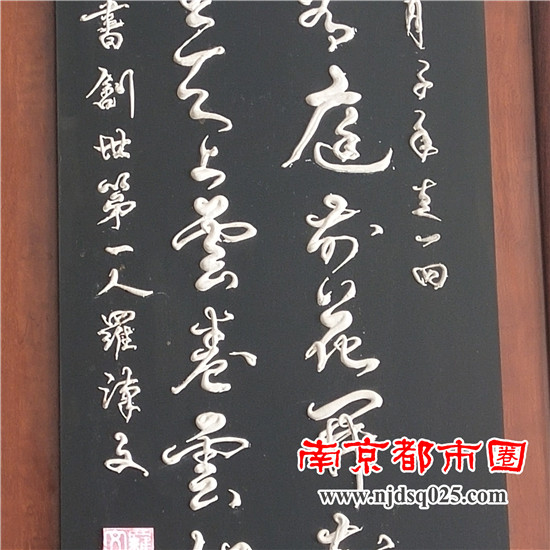 月子年一回
庭前花開花
天上雲卷雲
書創世第一人羅
南京都市圈
www.njdsq025.com